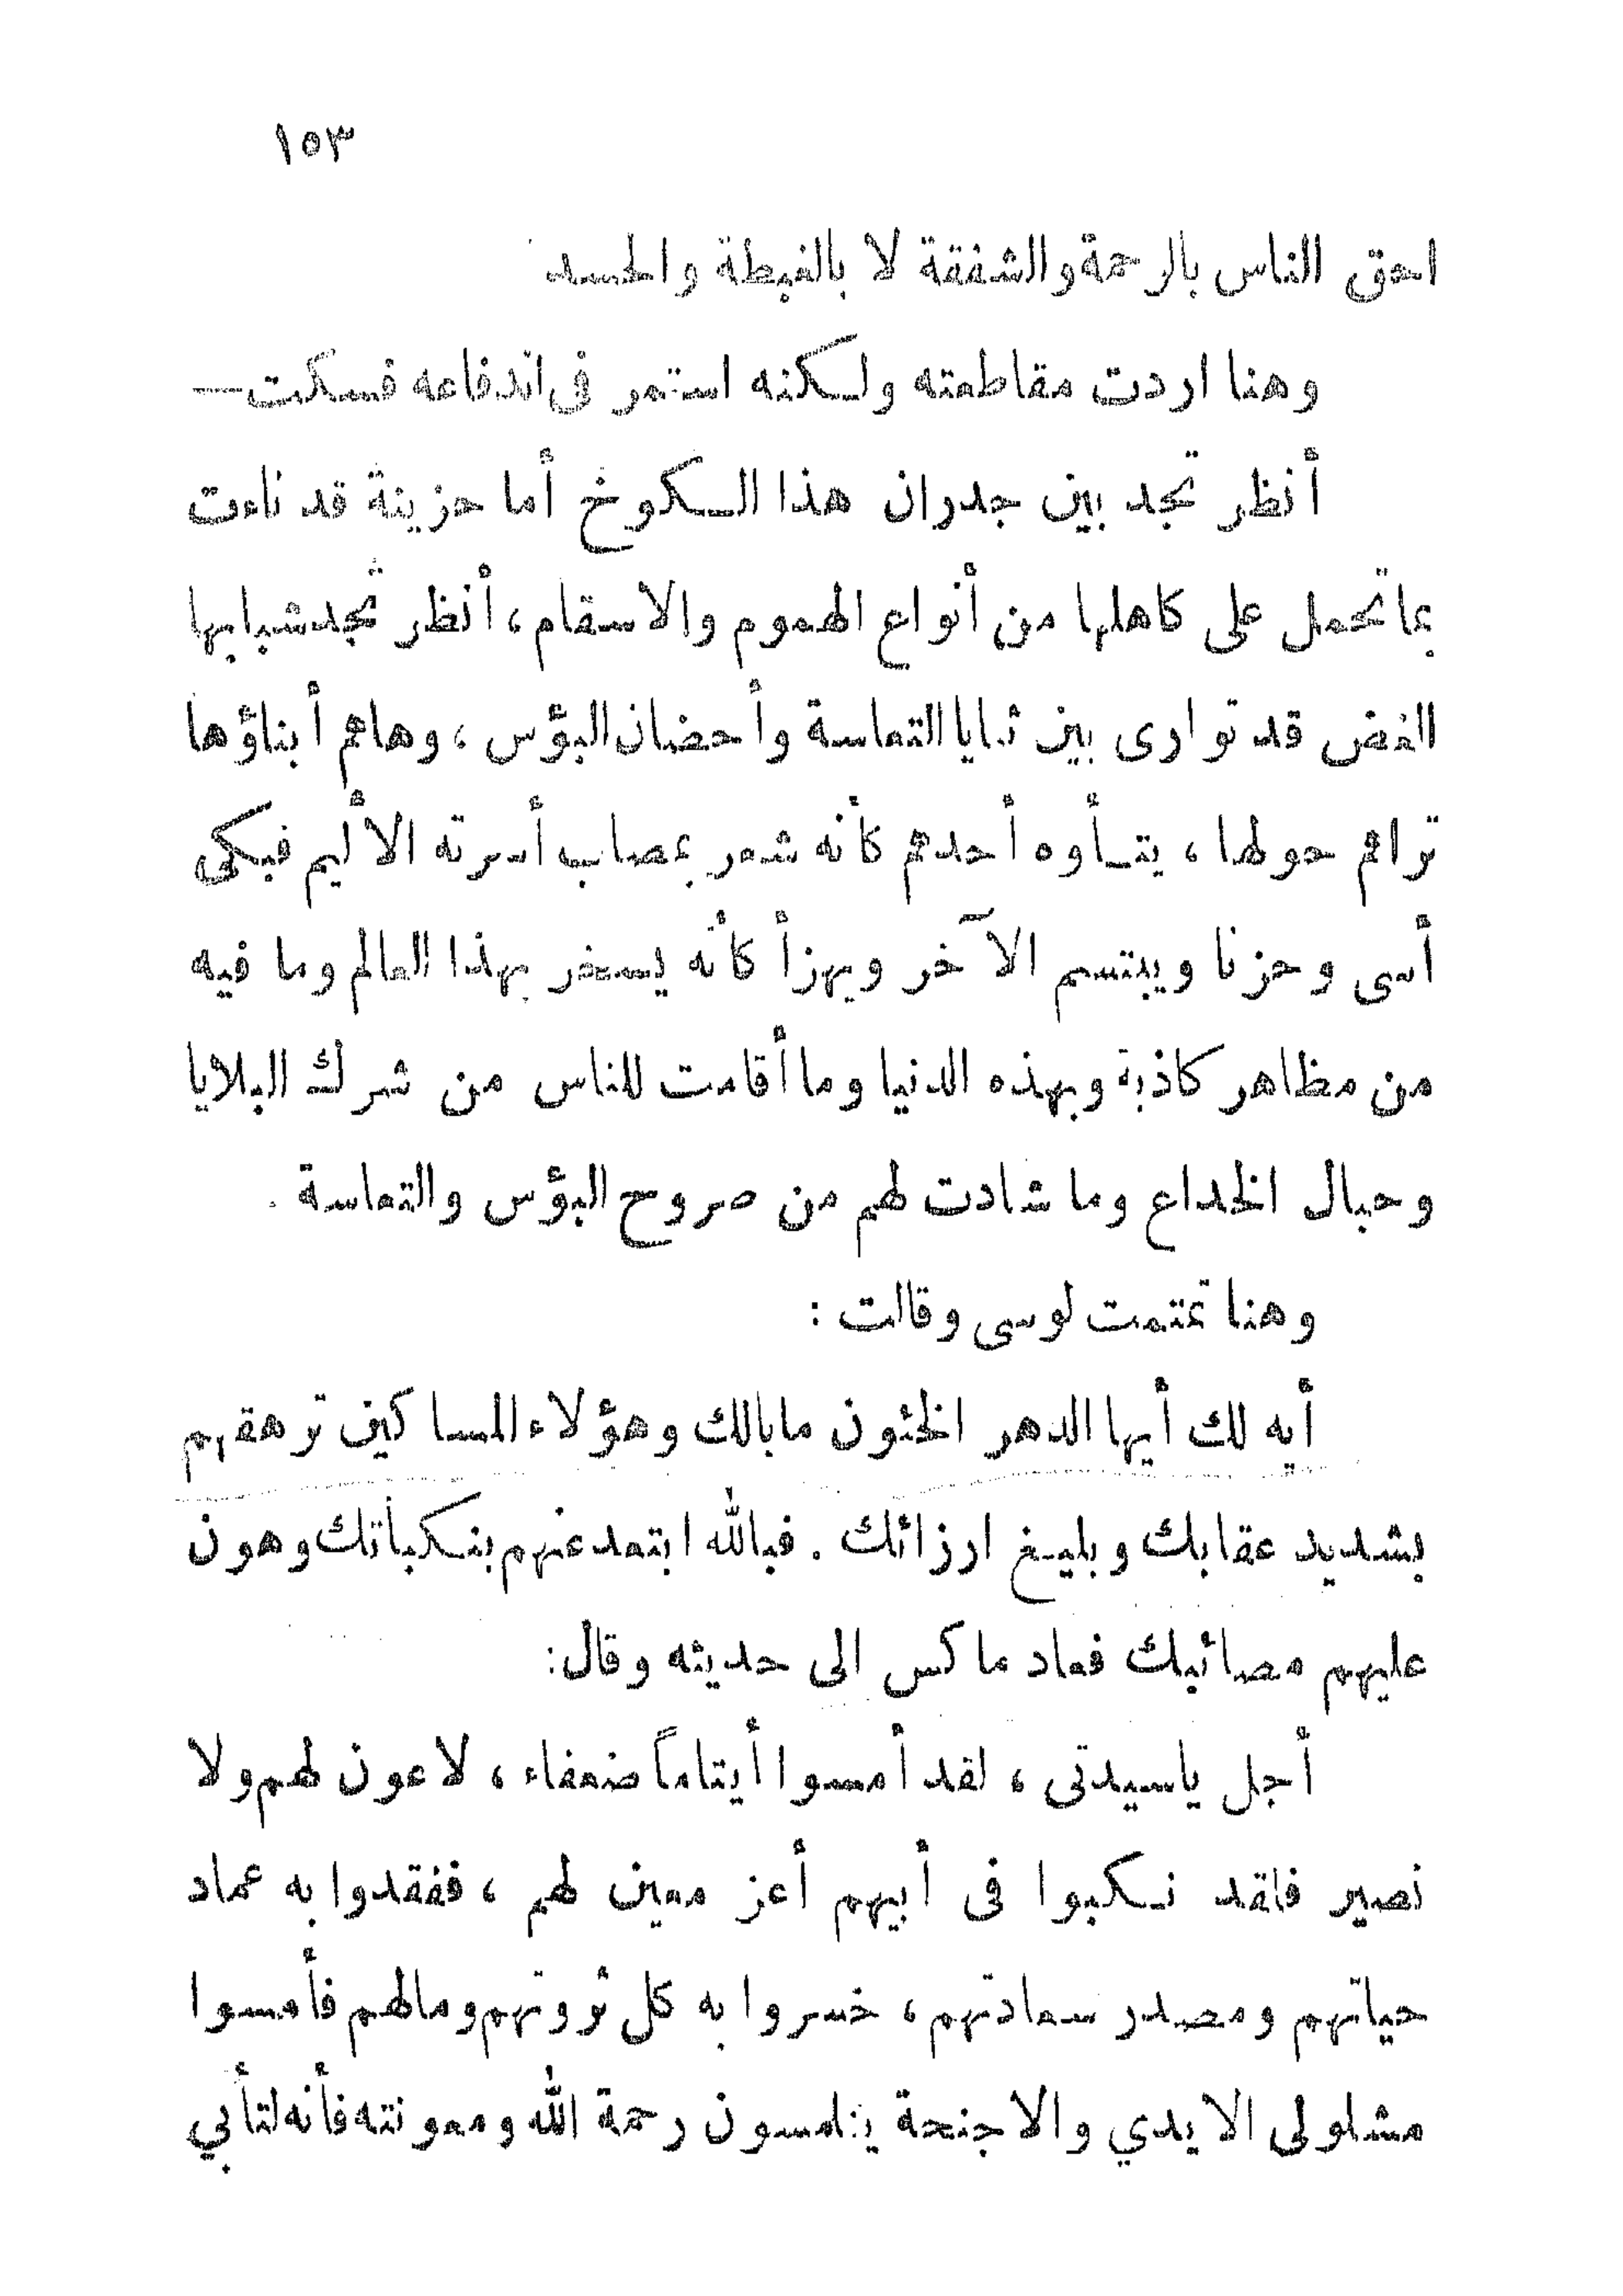 ١٥٣
احق الناس بالرحمة والشفقة لا بالغبطة والحسد
وهنا اردت مقاطعته ولكنه استمر فى اندفاعه فسكت —
أنظر تجد بين جدران هذا الكوخ أما حزينة قد ناءت
بما تحمل على كاهلها من أنواع الهموم والاسقام، أنظر تجد شبابها
الغض قد توارى بين ثنايا التعاسة وأحضان البؤس ، وهاهم أبناؤها
تراهم حولها ، يتأوه أحدهم كأنه شعر بمصاب أسرته الأليم فيبكى
أسى وحزنا ويبتسم الآخر ويهزأ كأنه يسخر بهذا العالم وما فيه
من مظاهر كاذبة وبهذه الدنيا وما أقامت للناس من شرك البلايا
وحبال الخداع وما شادت لهم من صروح البؤس والتعاسة .
وهنا تمتمت لوسى وقالت :
أيه لك أيها الدهر الخئون مابالك وهؤلاء المساكين ترهقهم
بشديد عقابك وبليغ ارزائك . فبالله ابتعد عنهم بنكباتك وهون
عليهم مصائبك فعاد ماكس الى حديثه وقال:
أجل ياسيدتى ، لقد أمسوا أيتاماً ضعفاء ، لا عون لهم ولا
نصير فلقد نكبوا فى أبيهم أعز معين لهم ، ففقدوا به عماد
حياتهم ومصدر سعادتهم ، خسروا به كل ثروتهم ومالهم فأمسوا
مشلولى الايدي والاجنحة يتلمسون رحمة الله ومعونته فأنه لتأبي